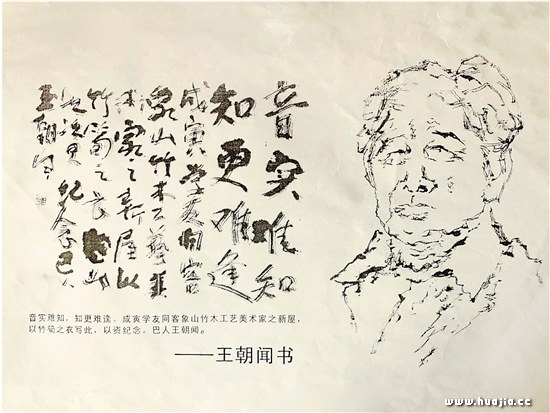 音实难知
知更难逢
戊寅学友同客
象山竹木工藝美
术家之新屋以
竹筍之衣写此
以资纪念巴人
王朝闻
音实难知，知更难逢。成寅学友同客象山竹木工艺美术家之新屋，
以竹筍之衣写此，以资纪念，巴人王朝闻。
——王朝闻书
www.huajia.cc